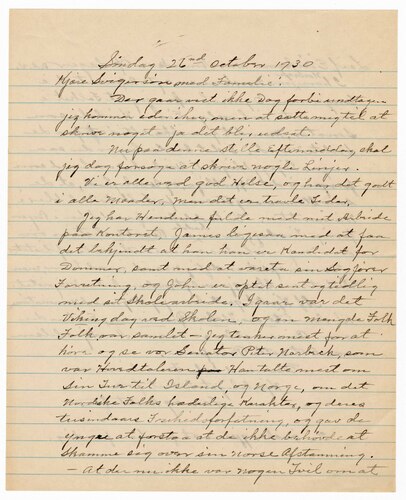 Söndag 26nd October 1930
Kjære Svigersön med Familie!
Der gaar vist ikke Dag forbi undtagen
jeg kommer eder ihu, men at sætta mig til at
skrive noget - ja det bliv udset.
Nu paa denne stille Eftermiddag skal
jeg dog forsöge at skrive nogle Linjer.
Vi er alle ved god Helse, og har det godt
i alle Maader, Men det er travle Tider,
Jeg har Hendene fulde med mit Arbide
paa Kontoret, James ligesaa med at faa
det bekjendt at han er Kandidet for
Dommer, samt med at vareta sin Sagförer
Forretning, og John er optet sent og tidlig
med sit Skolearbide. I gaar var det
Viking day ved Skolen, og en mengde Folk
Folk var samlet - Jeg tenker mest for at
höre og se vor Senator Peter Norbeck, som
var Hovedtaleren Han talte mest om
Sin Tur til Island og Norge, om det
Nordiske Folks hederlige Karakter, og deres
tusindaars Frihedsforfatning, og gav de
yngre at forstaa at de ikke behövde at
Skamme seg over sin Norse Afstamning.
- At der nu ikke var Nogen Tvil om at